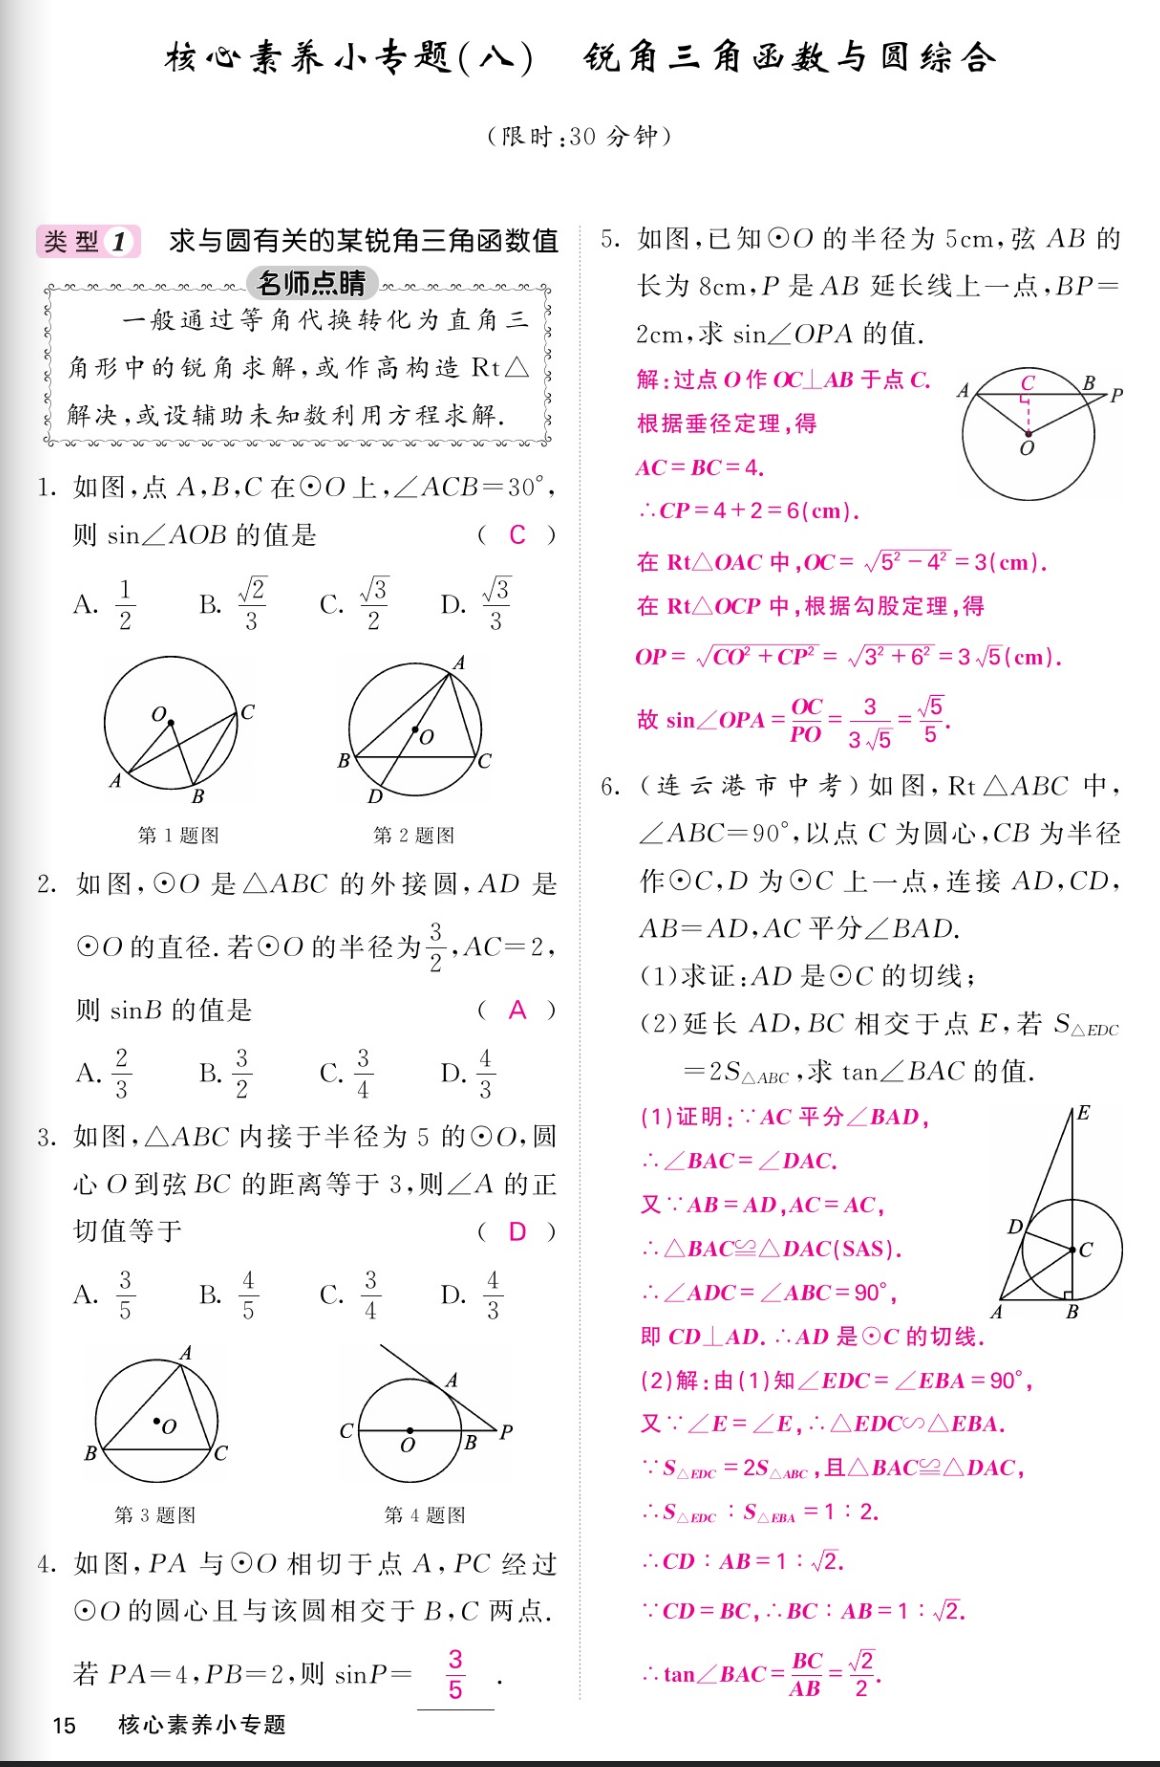 核心素养小专题(八)　锐角三角函数与圆综合
(限时:30 分钟)
类型1　求与圆有关的某锐角三角函数值
名师点睛
一般通过等角代换转化为直角三
角形中的锐角求解,或作高构造 Rt△
解决,或设辅助未知数利用方程求解.
1. 如图,点 A,B,C 在⊙O 上,∠ACB=30°,
则 sin∠AOB 的值是 ( C )
A. 1/2 B. √2/3 C. √3/2 D. √3/3
O C A B
A O B C D
第 1 题图 第 2 题图
2. 如图,⊙O 是△ABC 的外接圆,AD 是
⊙O 的直径.若⊙O 的半径为3/2,AC=2,
则 sinB 的值是 ( A )
A. 2/3 B. 3/2 C. 3/4 D. 4/3
3. 如图,△ABC 内接于半径为 5 的⊙O,圆
心 O 到弦 BC 的距离等于 3,则∠A 的正
切值等于 ( D )
A. 3/5 B. 4/5 C. 3/4 D. 4/3
A O B C
A C O B P
第 3 题图 第 4 题图
4. 如图,PA 与⊙O 相切于点 A,PC 经过
⊙O 的圆心且与该圆相交于 B,C 两点.
若 PA=4,PB=2,则 sinP= 3/5 .
15 核心素养小专题
5. 如图,已知⊙O 的半径为 5cm,弦 AB 的
长为 8cm,P 是 AB 延长线上一点,BP=
2cm,求 sin∠OPA 的值.
解:过点 O 作 OC⊥AB 于点 C.
根据垂径定理,得
AC=BC=4.
∴CP=4+2=6(cm).
A C B P O
在 Rt△OAC 中,OC=√(5²-4²)=3(cm).
在 Rt△OCP 中,根据勾股定理,得
OP=√(CO²+CP²)=√(3²+6²)=3√5(cm).
故 sin∠OPA=OC/PO=3/(3√5)=√5/5.
6. (连云港市中考)如图,Rt△ABC 中,
∠ABC=90°,以点 C 为圆心,CB 为半径
作⊙C,D 为⊙C 上一点,连接 AD,CD,
AB=AD,AC 平分∠BAD.
(1)求证:AD 是⊙C 的切线;
(2)延长 AD,BC 相交于点 E,若 S△EDC
=2S△ABC,求 tan∠BAC 的值.
(1)证明:∵AC 平分∠BAD,
∴∠BAC=∠DAC.
又∵AB=AD,AC=AC,
∴△BAC≌△DAC(SAS).
∴∠ADC=∠ABC=90°,
即 CD⊥AD.∴AD 是⊙C 的切线.
E D C A B
(2)解:由(1)知∠EDC=∠EBA=90°,
又∵∠E=∠E,∴△EDC∽△EBA.
∵S△EDC=2S△ABC,且△BAC≌△DAC,
∴S△EDC∶S△EBA=1∶2.
∴CD∶AB=1∶√2.
∵CD=BC,∴BC∶AB=1∶√2.
∴tan∠BAC=BC/AB=√2/2.